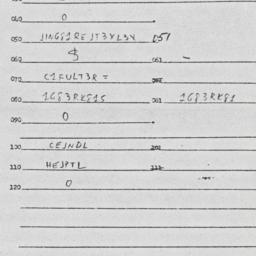 040 0
050 JING81REJT3XL3X 051
$ 061 -
070 C1FULT3R =
080 1G83RK81S 081 1G83RK81
090 0
100 CEJNDL 101
110 HEJPTL 111
120 0